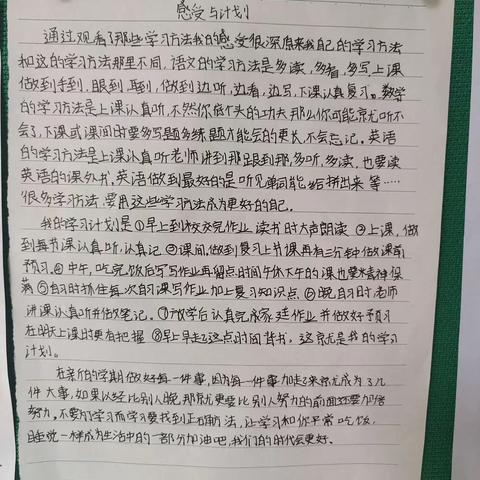 感受与计划
通过观看了那些学习方法我的感受很深原来我自己的学习方法
和这的学习方法那里不同,语文的学习方法是多读,多看,多写上课
做到手到,眼到,耳到,做到边听,边看,边写,下课认真复习。数学
的学习方法是上课认真听,不然你低个头的功夫那么你可能就听不
会了,下课或课间时要多写题多练题才能会的更长,不会忘记。英语
的学习方法是上课认真听老师讲到那跟到那,多听,多读,也要读
英语的课外书,英语做到最好的是听见单词能给拼出来等……
很多学习方法,要用这些学习方法成为更好的自己.
我的学习计划是①早上到校交完作业,读书时大声朗读 ②上课,做
到每节课认真听,认真记 ③课间,做到复习上节课再有三分钟做课前
预习.④中午,吃完饭后写写作业再留点时间午休下午的课也要精神保
满⑤自习时抓住每次自习课写作业加上复习知识点 ⑥晚自习时,老师
讲课认真听并做笔记. ⑦放学后认真完成家廷作业并做好予预习
在明天上课时更有把握 ⑧早上早起这点时间背书,这就是我的学习
计划。
在新的学期做好每一件事,因为每一件事加起来就成为了几
件大事,如果从经比别人晚,那就更要比别人努力的前面还要加倍
努力,不要为学习而学习要找到正确方法,让学习和你平常吃饭,
睡觉一样成为生活中的一部分加油吧,我们的时代会更好.